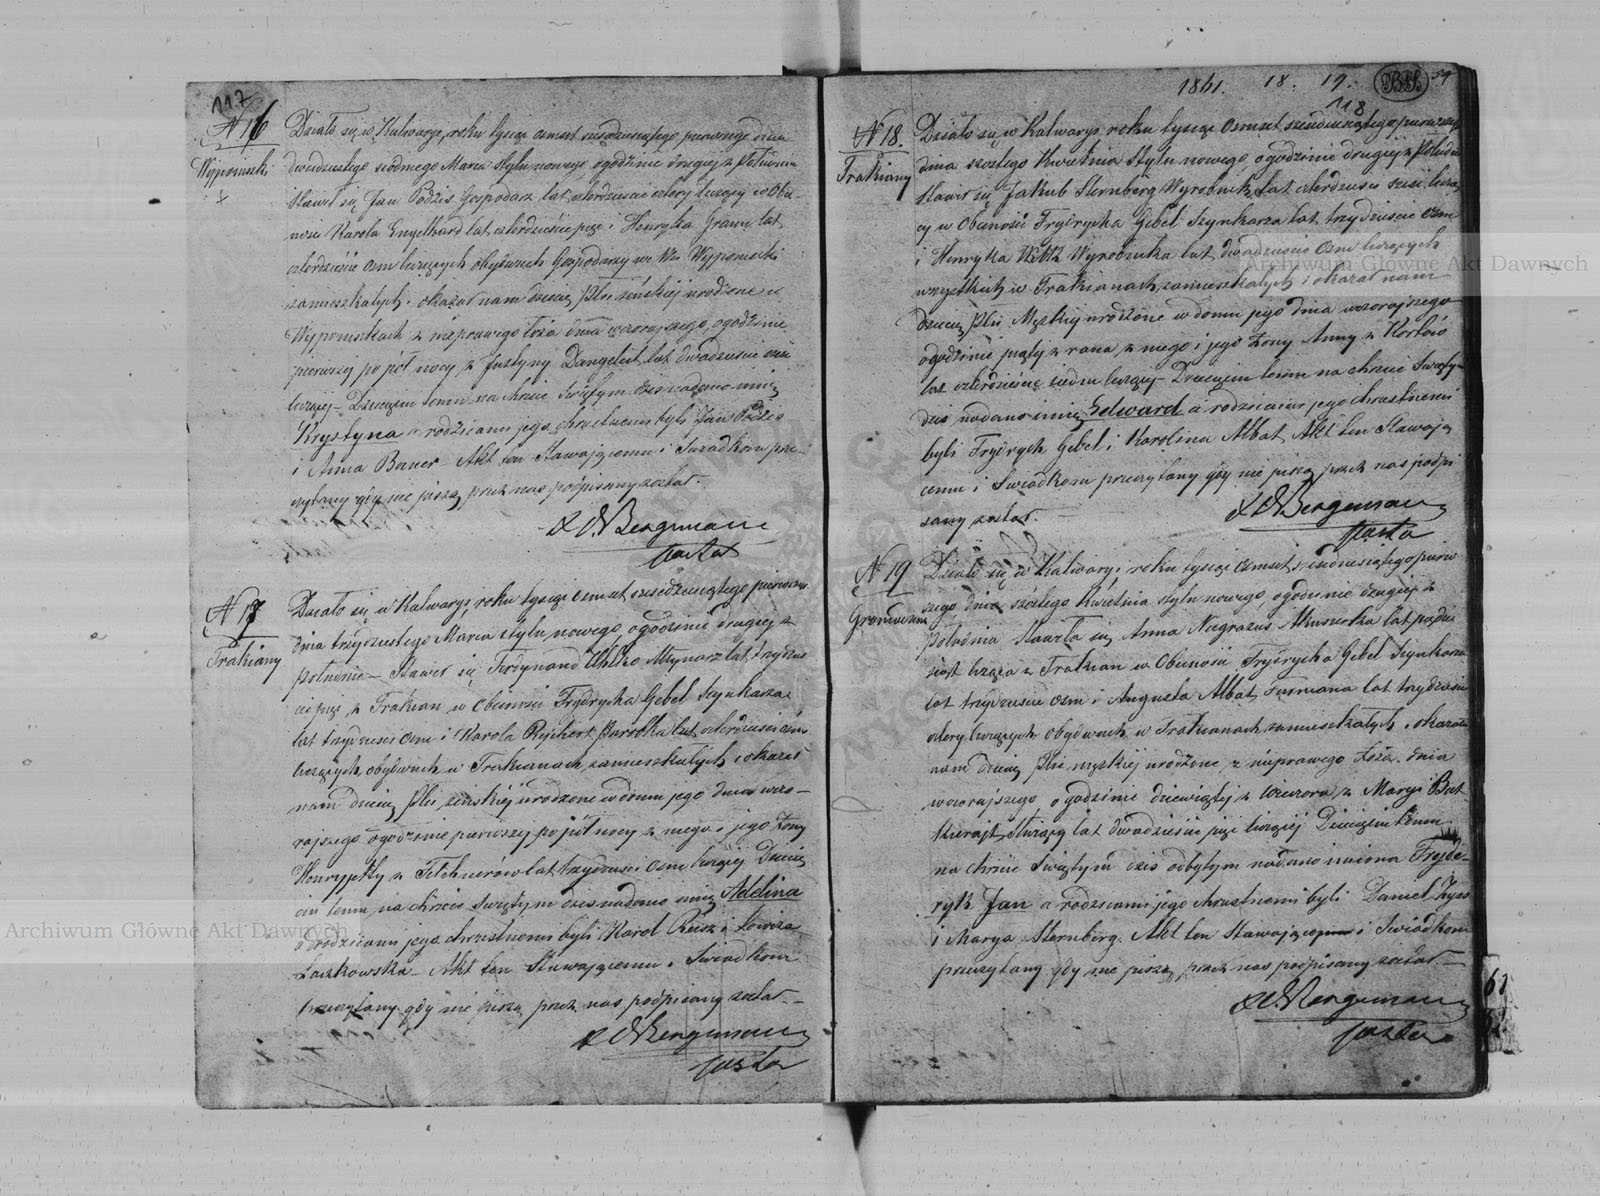 117
N 16
Wypomiszki
Działo się w Kalwaryi, roku tysiąc ośmset sześdziesiątego pierwszego dnia
dwudziestego siódmego Marca stylu nowego, o godzinie drugiej z Południa
Stawił się Jan Podzis Gospodarz lat czterdzieści cztery liczący w Obe-
cności Karola Engelhard lat czterdzieście pięć i Henryka Braun lat
czterdzieście ośm liczących obydwuch Gospodarzy we Wsi Wypomiszki
zamieszkałych i okazał nam dziecię Płci żeńskiej urodzone w
Wypomiszkach z nieprawego łoża dnia wczorajszego, o godzinie
pierwszej po pół nocy z Justyny Dangelat, lat dwadzieście
liczącej – Dziecięciu temu na chrzcie Świętym dziś nadano imię
Krystyna a rodzicami jego chrzestnemi byli Jan Podzis
i Anna Bauer – Akt ten Stawającemu i Świadkom prze-
czytany gdy nie piszą przez nas podpisany został.
X O. Bergmann
Pastor
N 17
Trakiany
Działo się w Kalwaryi, roku tysiąc ośmset sześdziesiątego pierwszego
dnia trzydziestego Marca stylu nowego, o godzinie drugiej z
południa – Stawił się Ferdynand Młynarz lat trzydzie
ści pięć z Trakian w Obecności Frydrycha Gebel Szynkarza
lat trzydzieści ośm i Karola Rejchert Parobka lat czterdzieści ośm
liczących, obydwuch w Trakianach zamieszkałych i okazał
nam dziecię Płci żeńskiej urodzone w domu jego dnia wczo-
rajszego o godzinie pierwszej po pół nocy z niego i jego Żony
Henryetty z lat trzydzieści ośm liczącej Dziecię
ciu temu na chrzcie Świętym dziś nadano imię Adelina
a rodzicami jego chrzestnemi byli Karol i Lowiza
Laszkowska – Akt ten Stawającemu i Świadkom
przeczytany gdy nie piszą przez nas podpisany został –
X O Bergmann
Pastor
1861. 18. 19. 59
118
N 18.
Trakiany
Działo się w Kalwaryi roku tysiąc Ośmset sześdziesiątego pierwszego
dnia szóstego Kwietnia Stylu nowego o godzinie drugiej z Południa
Stawił się Jakub Sternberg Wyrobnik, lat czterdzieści sześć licza
cy w Obecności Frydrycha Gebel Szynkarza lat trzydzieście ośm
i Henryka Wyrobnika lat dwadzieście ośm liczących
wszystkich w Trakianach, zamieszkałych i okazał nam
dziecię Płci Męzkiej urodzone w domu jego dnia wczorajszego
o godzinie piątej z rana, z niego i jego Żony Anny z
lat czterdzieście siedm liczącej – Dziecięciu temu na chrzcie Świętym
dziś nadano imię Edward a rodzicami jego chrzestnemi
byli Frydrych Gebel i Karolina Albat, Akt ten Stawają
cemu i Świadkom przeczytany gdy nie piszą przez nas podpi
sany został.
X O Bergmann
Pastor
N 19
Działo się w Kalwaryi roku tysiąc ośmset sześdziesiątego pierw
szego dnia szóstego Kwietnia stylu nowego o godzinie drugiej z
Południa Stawiła się Anna Niegrazus Akuszerka lat pięćdzie
siąt licząca z Trakian w Obecności Frydrycha Gebel Szynkarza
lat trzydzieście ośm i Augusta Albat Furmana lat trzydzieście
cztery liczących obydwuch w Trakianach zamieszkałych i okazała
nam dziecię Płci męzkiej urodzone z nieprawego łoża dnia
wczorajszego o godzinie dziewiątej z wieczora z Maryi
Służącej lat dwadzieście pięć liczącej Dziecięciu temu
na chrzcie Świętym dziś odbytym nadano imiona Fryde-
ryk Jan a rodzicami jego chrzestnemi byli Daniel
i Marya Sternberg. Akt ten Stawającej i Świadkom
przeczytany gdy nie piszą przez nas podpisany został –
X O Bergmann
Pastor
Archiwum Główne Akt Dawnych
Archiwum Główne Akt Dawnych